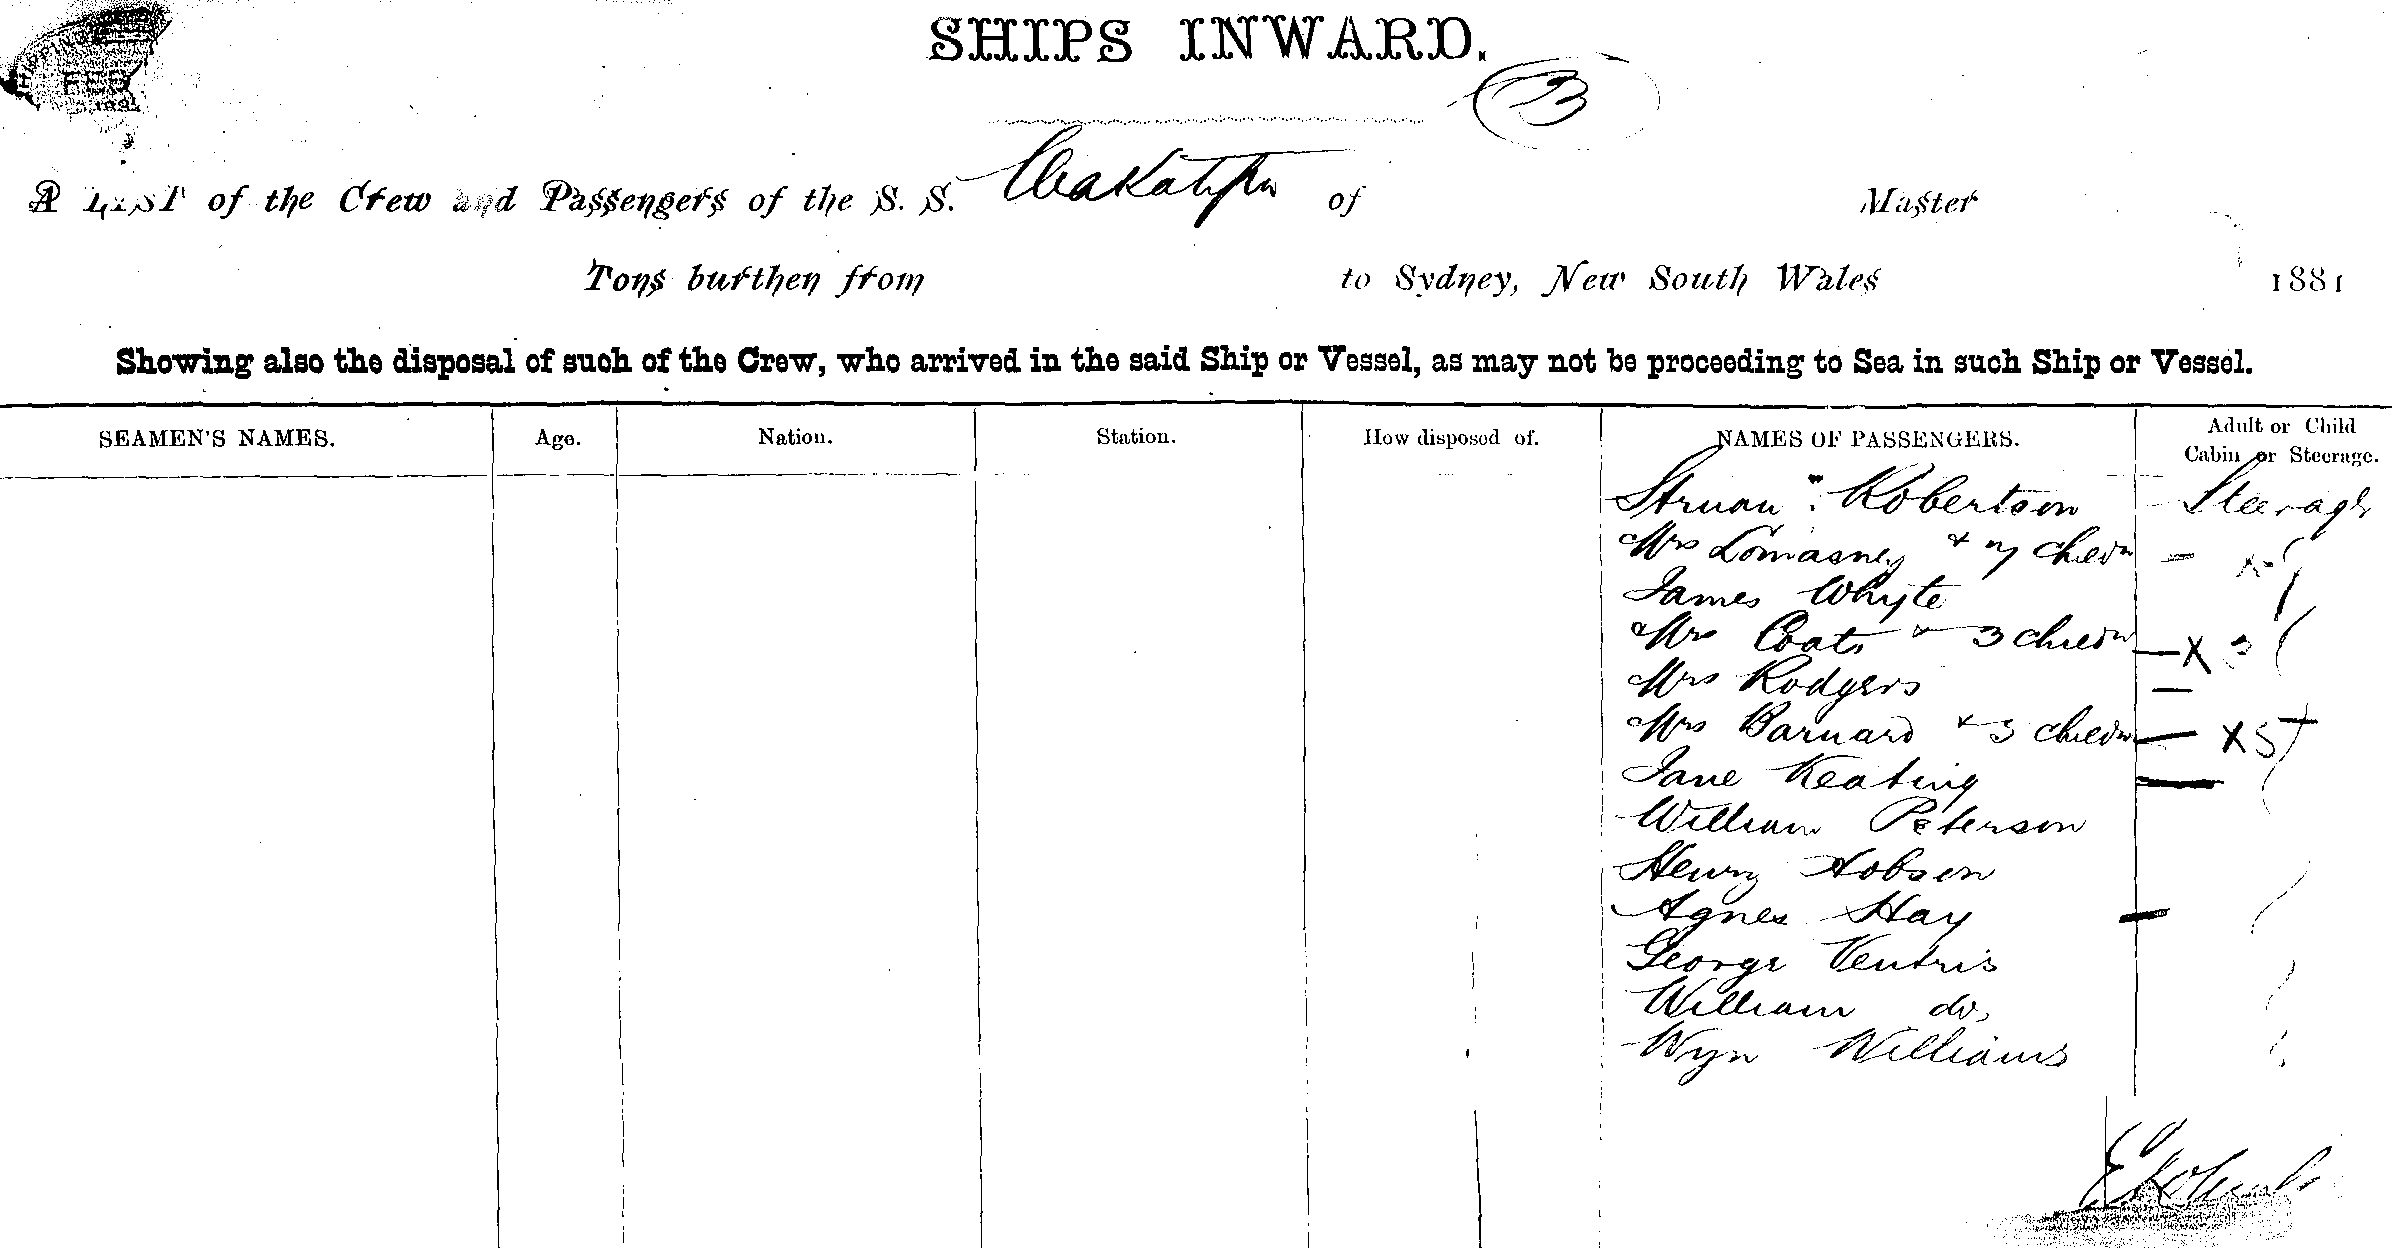 SHIPS INWARD.
3
A LIST of the Crew and Passengers of the S. S. Wakatipu of Master
Tons burthen from to Sydney, New South Wales 1881
Showing also the disposal of such of the Crew, who arrived in the said Ship or Vessel, as may not be proceeding to Sea in such Ship or Vessel.
SEAMEN'S NAMES. Age. Nation. Station. How disposed of. NAMES OF PASSENGERS. Adult or Child Cabin or Steerage.
Struan Robertson Steerage
Mrs Lomasney + 7 childn
James Whyte
Mrs Coats + 3 childn — X 3
Mrs Rodgers —
Mrs Barnard + 3 childn —
Jane Keating —
William Peterson
Henry Hobson
Agnes Hay —
George Ventris
William do.
Wyn Williams